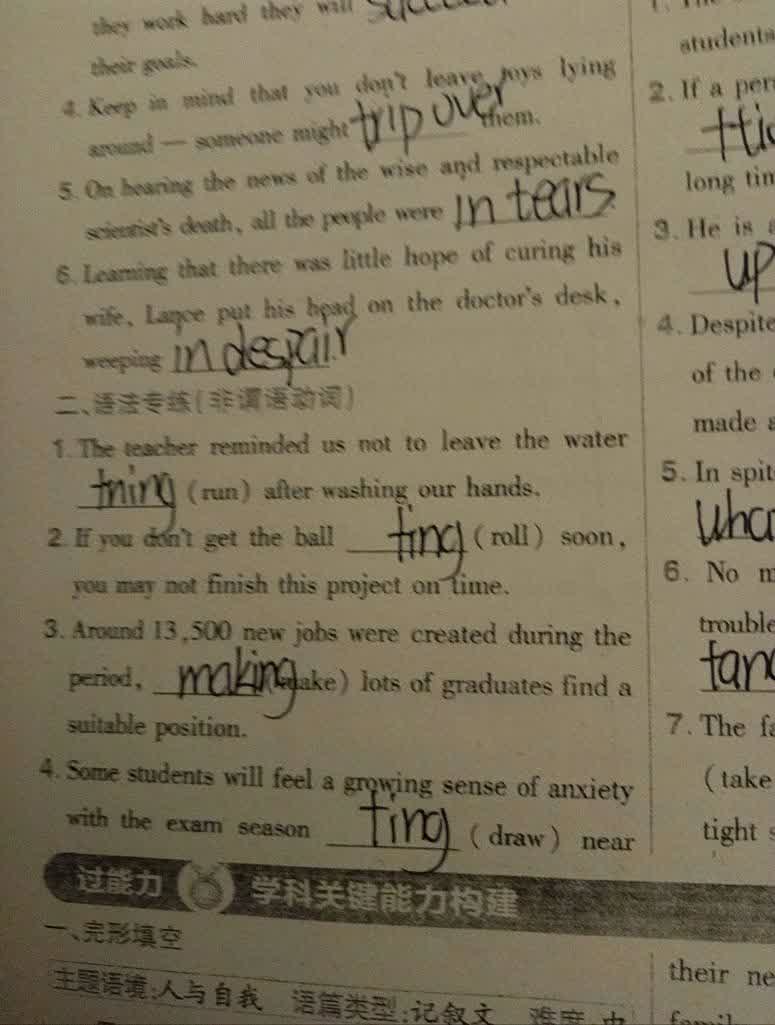 they work hard they will
their goals.
4. Keep in mind that you don't leave toys lying
around — someone might trip over them.
5. On hearing the news of the wise and respectable
scientist's death, all the people were in tears.
6. Learning that there was little hope of curing his
wife, Lance put his head on the doctor's desk,
weeping in despair.
二、语法专练(非谓语动词)
1. The teacher reminded us not to leave the water
tning (run) after washing our hands.
2. If you don't get the ball ting (roll) soon,
you may not finish this project on time.
3. Around 13,500 new jobs were created during the
period, making (make) lots of graduates find a
suitable position.
4. Some students will feel a growing sense of anxiety
with the exam season ting (draw) near
过能力 学科关键能力构建
一、完形填空
主题语境:人与自我 语篇类型:记叙文 难度:中
students
2. If a per
long tim
3. He is a
up
4. Despite
of the
made a
5. In spit
6. No m
trouble
7. The fa
(take
tight s
their ne
famil